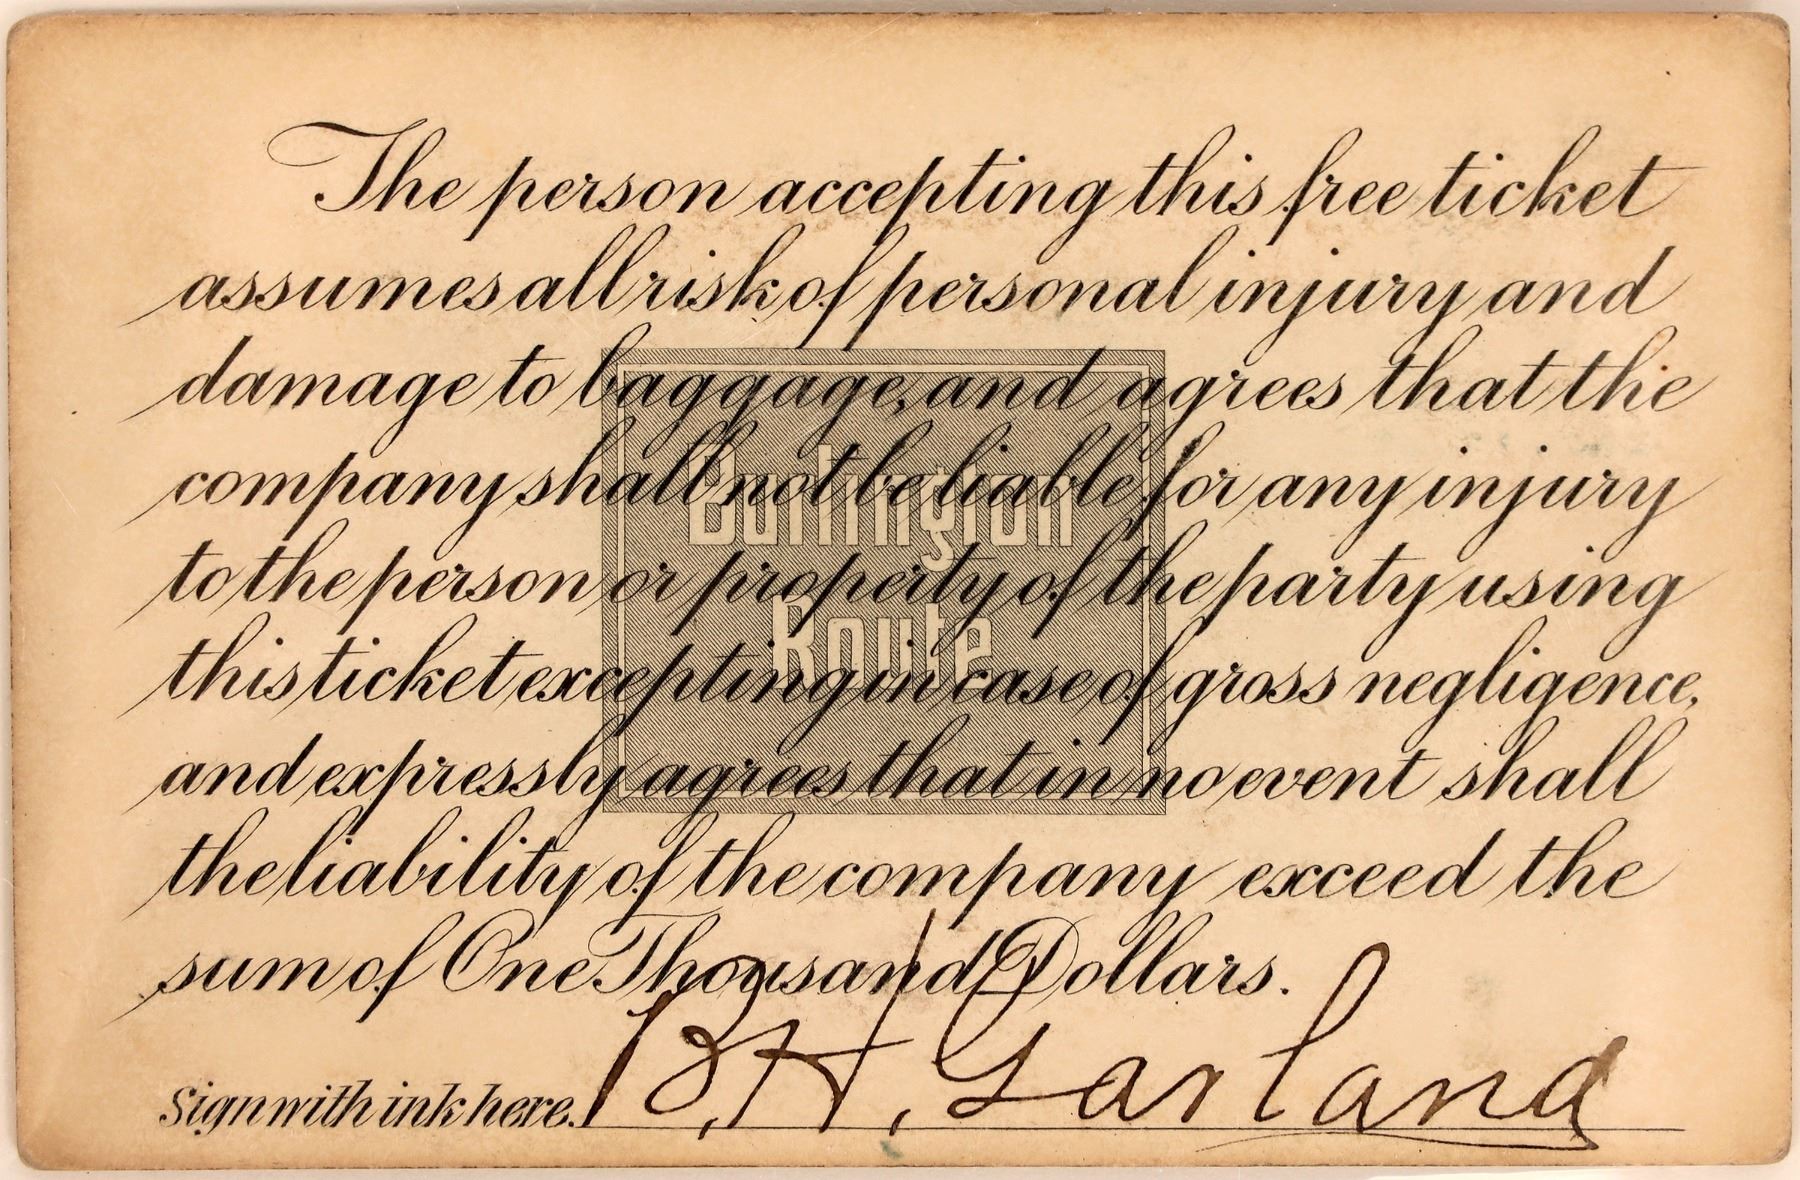 The person accepting this free ticket
assumes all risk of personal injury and
damage to baggage, and agrees that the
company shall not be liable for any injury
Burlington
to the person or property of the party using
Route
this ticket excepting in case of gross negligence,
and expressly agrees that in no event shall
the liability of the company exceed the
sum of One Thousand Dollars.
Sign with ink here. B. H. Garland